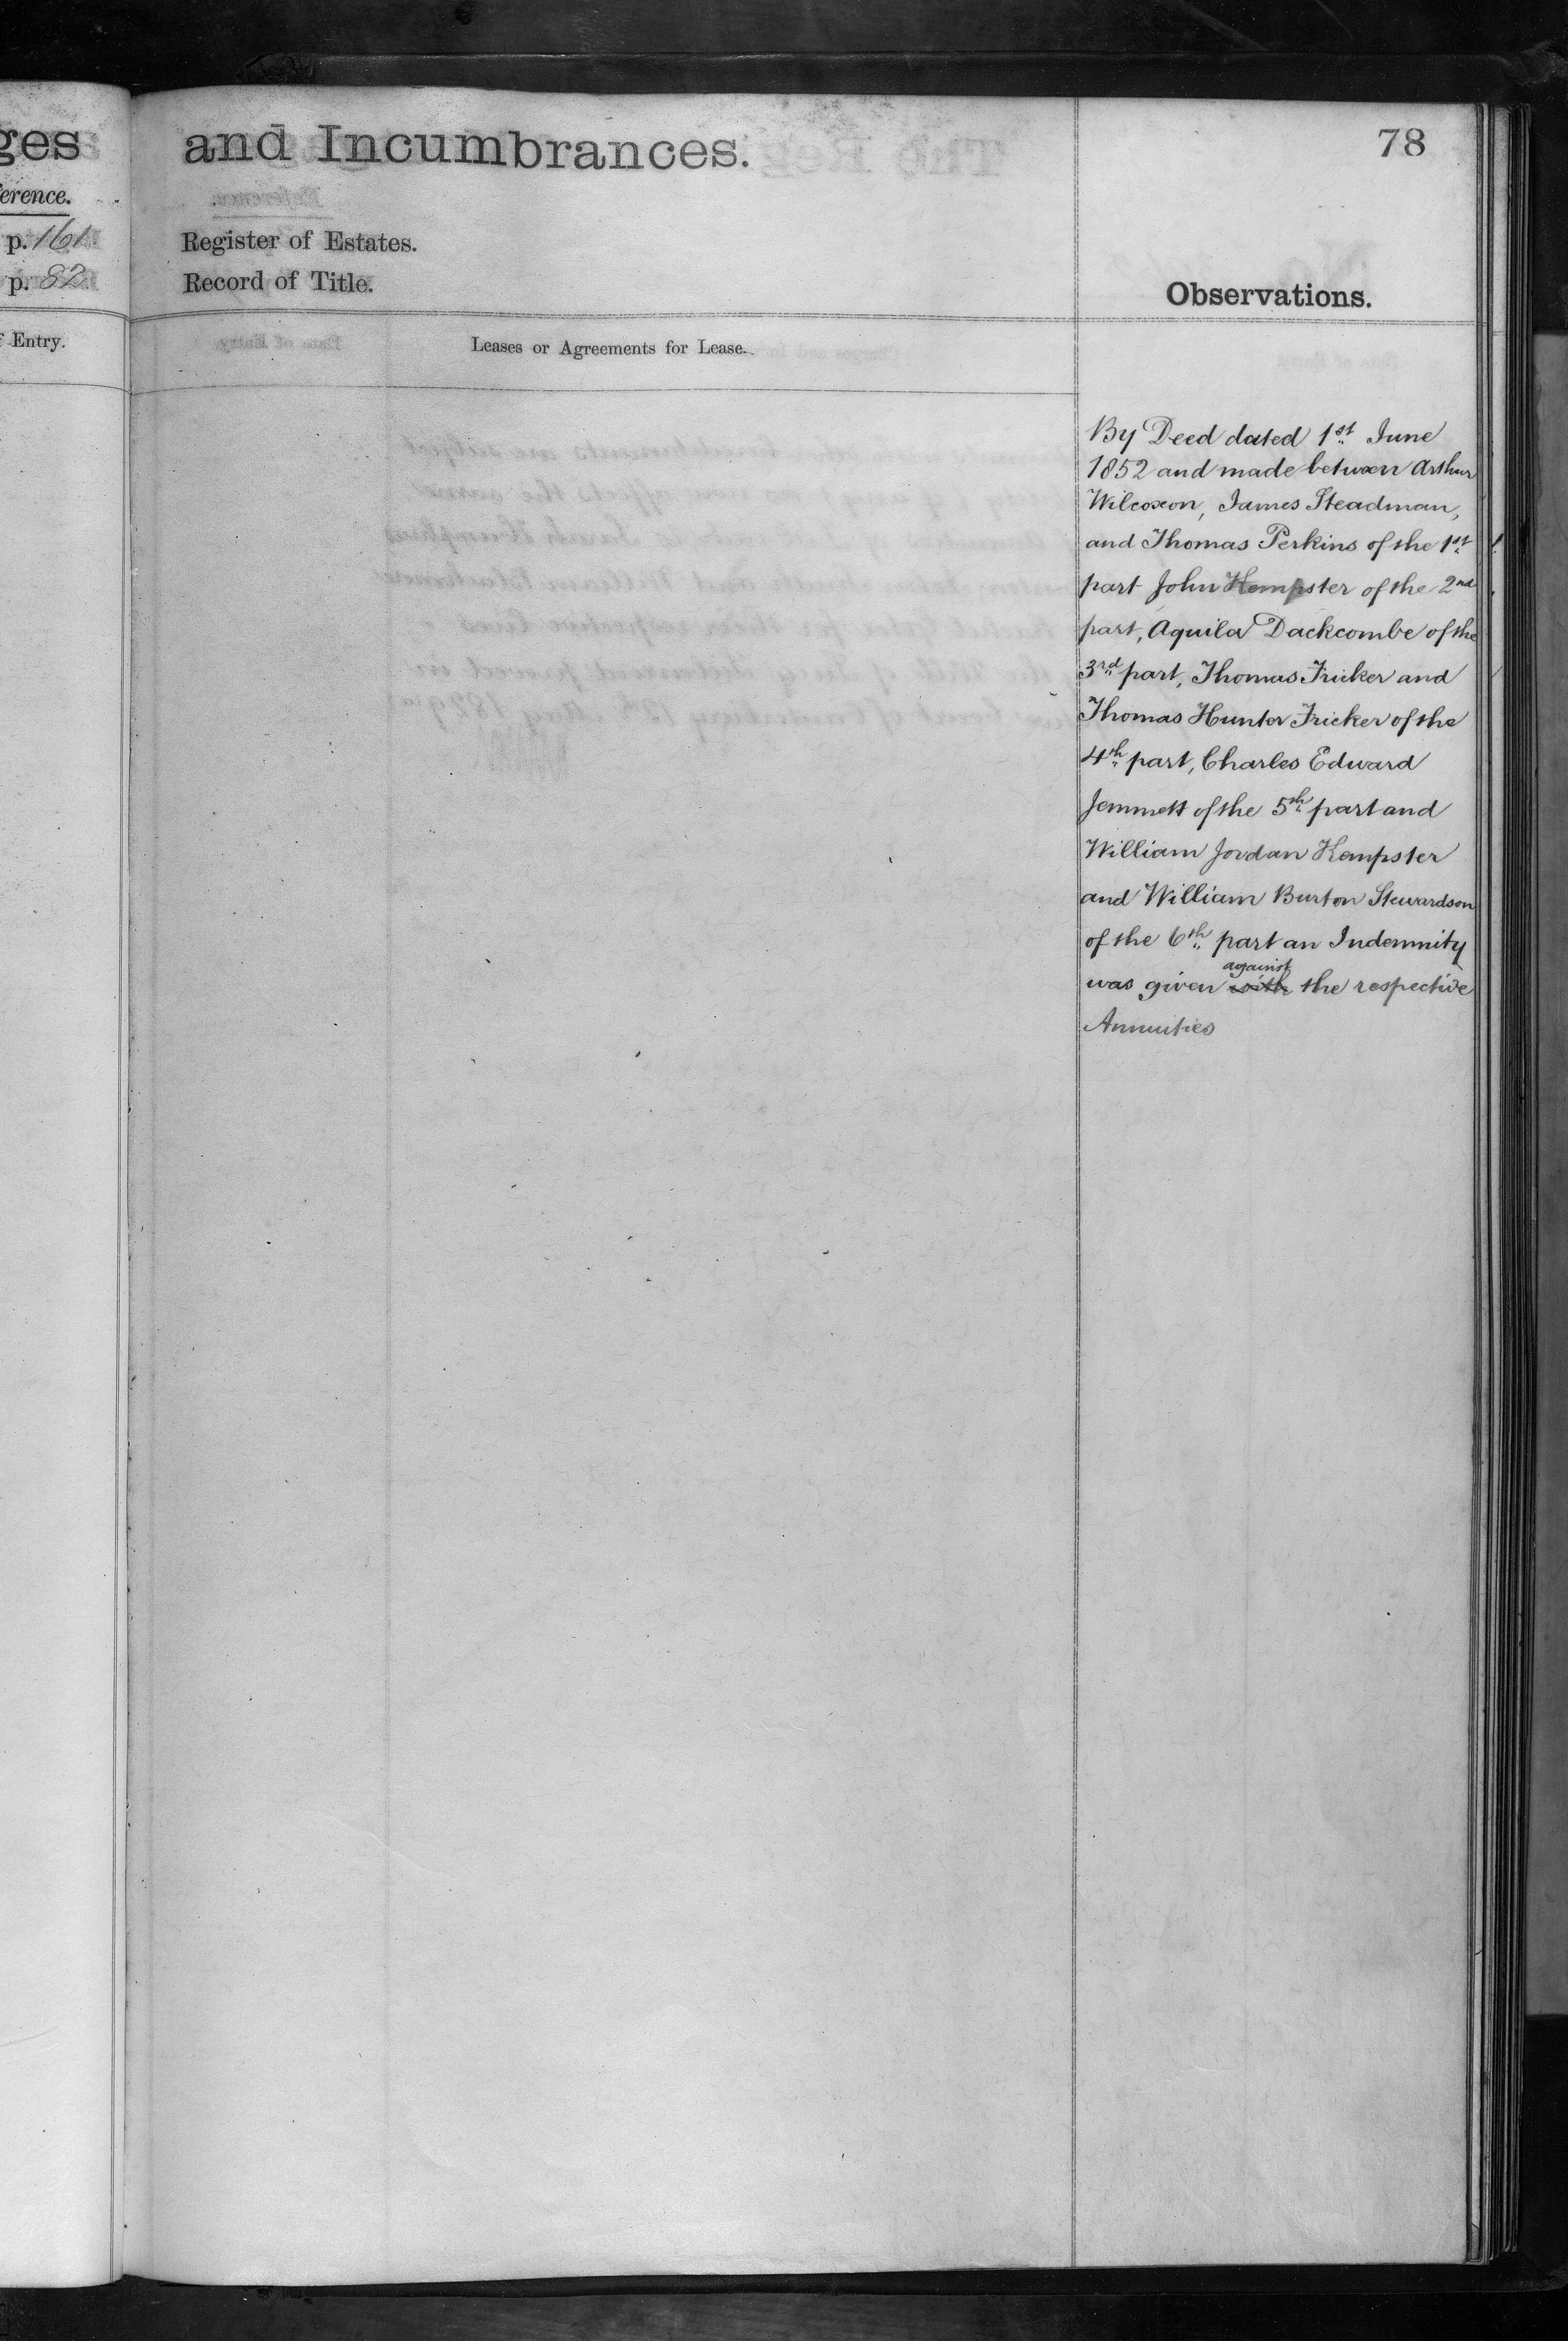 ges
and Incumbrances.
78
ference.
p. 161
Register of Estates.
p. 82
Record of Title.
Observations.
f Entry.
Leases or Agreements for Lease.
By Deed dated 1st June
1852 and made between Arthur
Wilcoxon, James Steadman,
and Thomas Perkins of the 1st
part John Kempster of the 2nd
part, Aquila Dackcombe of the
3rd part, Thomas Fricker and
Thomas Hunter Fricker of the
4th part, Charles Edward
Jemmett of the 5th part and
William Jordan Kempster
and William Burton Stewardson
of the 6th part an Indemnity
against
was given with the respective
Annuities